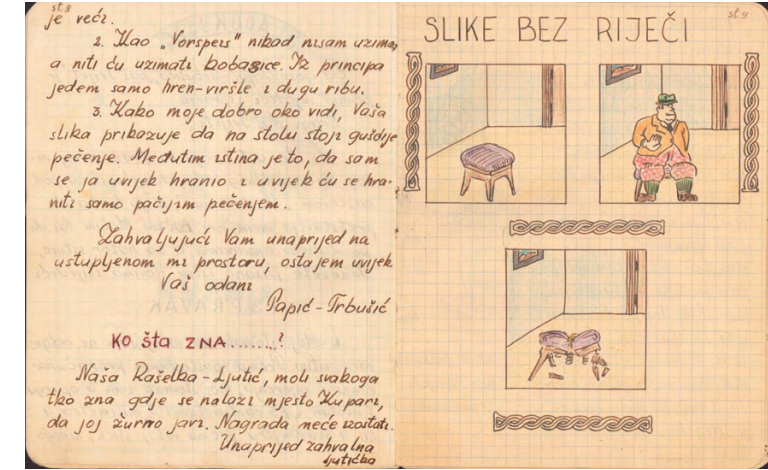 st. 8
je veći.
2. Kao „Vorspeis" nikad nisam uzimao,
a niti ću uzimati kobasice. Iz principa
jedem samo hren-viršle i dugu ribu.
3. Kako moje dobro oko vidi, Vaša
slika prikazuje da na stolu stoji guščje
pečenje. Međutim istina je to, da sam
se ja uvijek hranio i uvijek ću se hra-
niti samo pačijim pečenjem.
Zahvaljujući Vam unaprijed na
ustupljenom mi prostoru, ostajem uvijek
Vaš odani
Papić-Trbušić
KO šta ZNA........?
Naša Rašelka-Ljutić, moli svakoga
tko zna gdje se nalazi mjesto Kupari,
da joj žurno javi. Nagrada neće izostati.
Unaprijed zahvalna
Ljutićka
st. 9
SLIKE BEZ RIJEČI